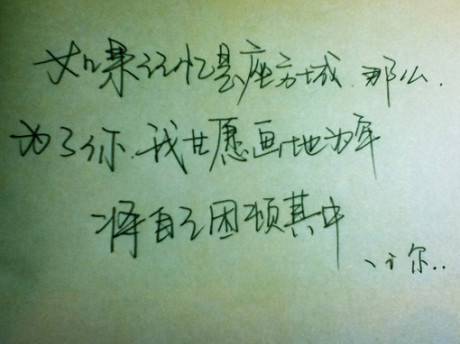 如果记忆是座方城.那么.
为了你.我甘愿画地为牢
将自己困顿其中
、小尔..